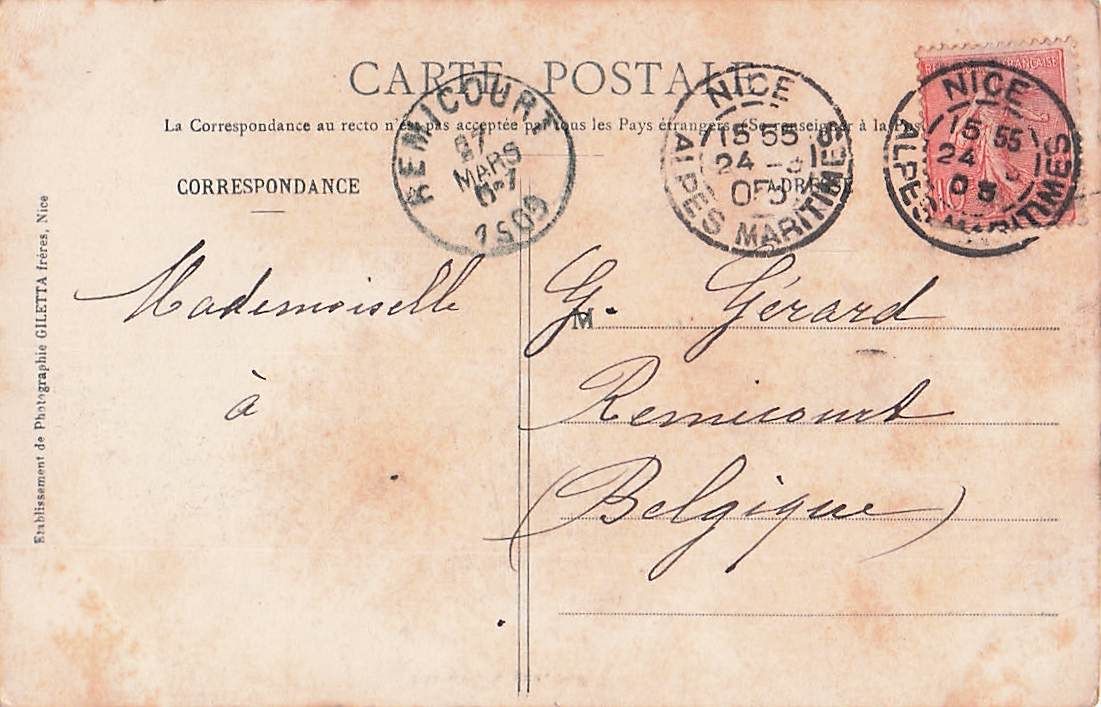 CARTE POSTALE
La Correspondance au recto n'est pas acceptée par tous les Pays étrangers (Se renseigner à la Pos
CORRESPONDANCE
ADRESSE
REMICOURT
MARS
1905
NICE
15 55
24 -3
05
ALPES MARITIMES
NICE
15 55
24
05
ALPES MARITIMES
10
Mademoiselle G. Gérard
M
à Remicourt
(Belgique)
Etablissement de Photographie GILETTA frères, Nice